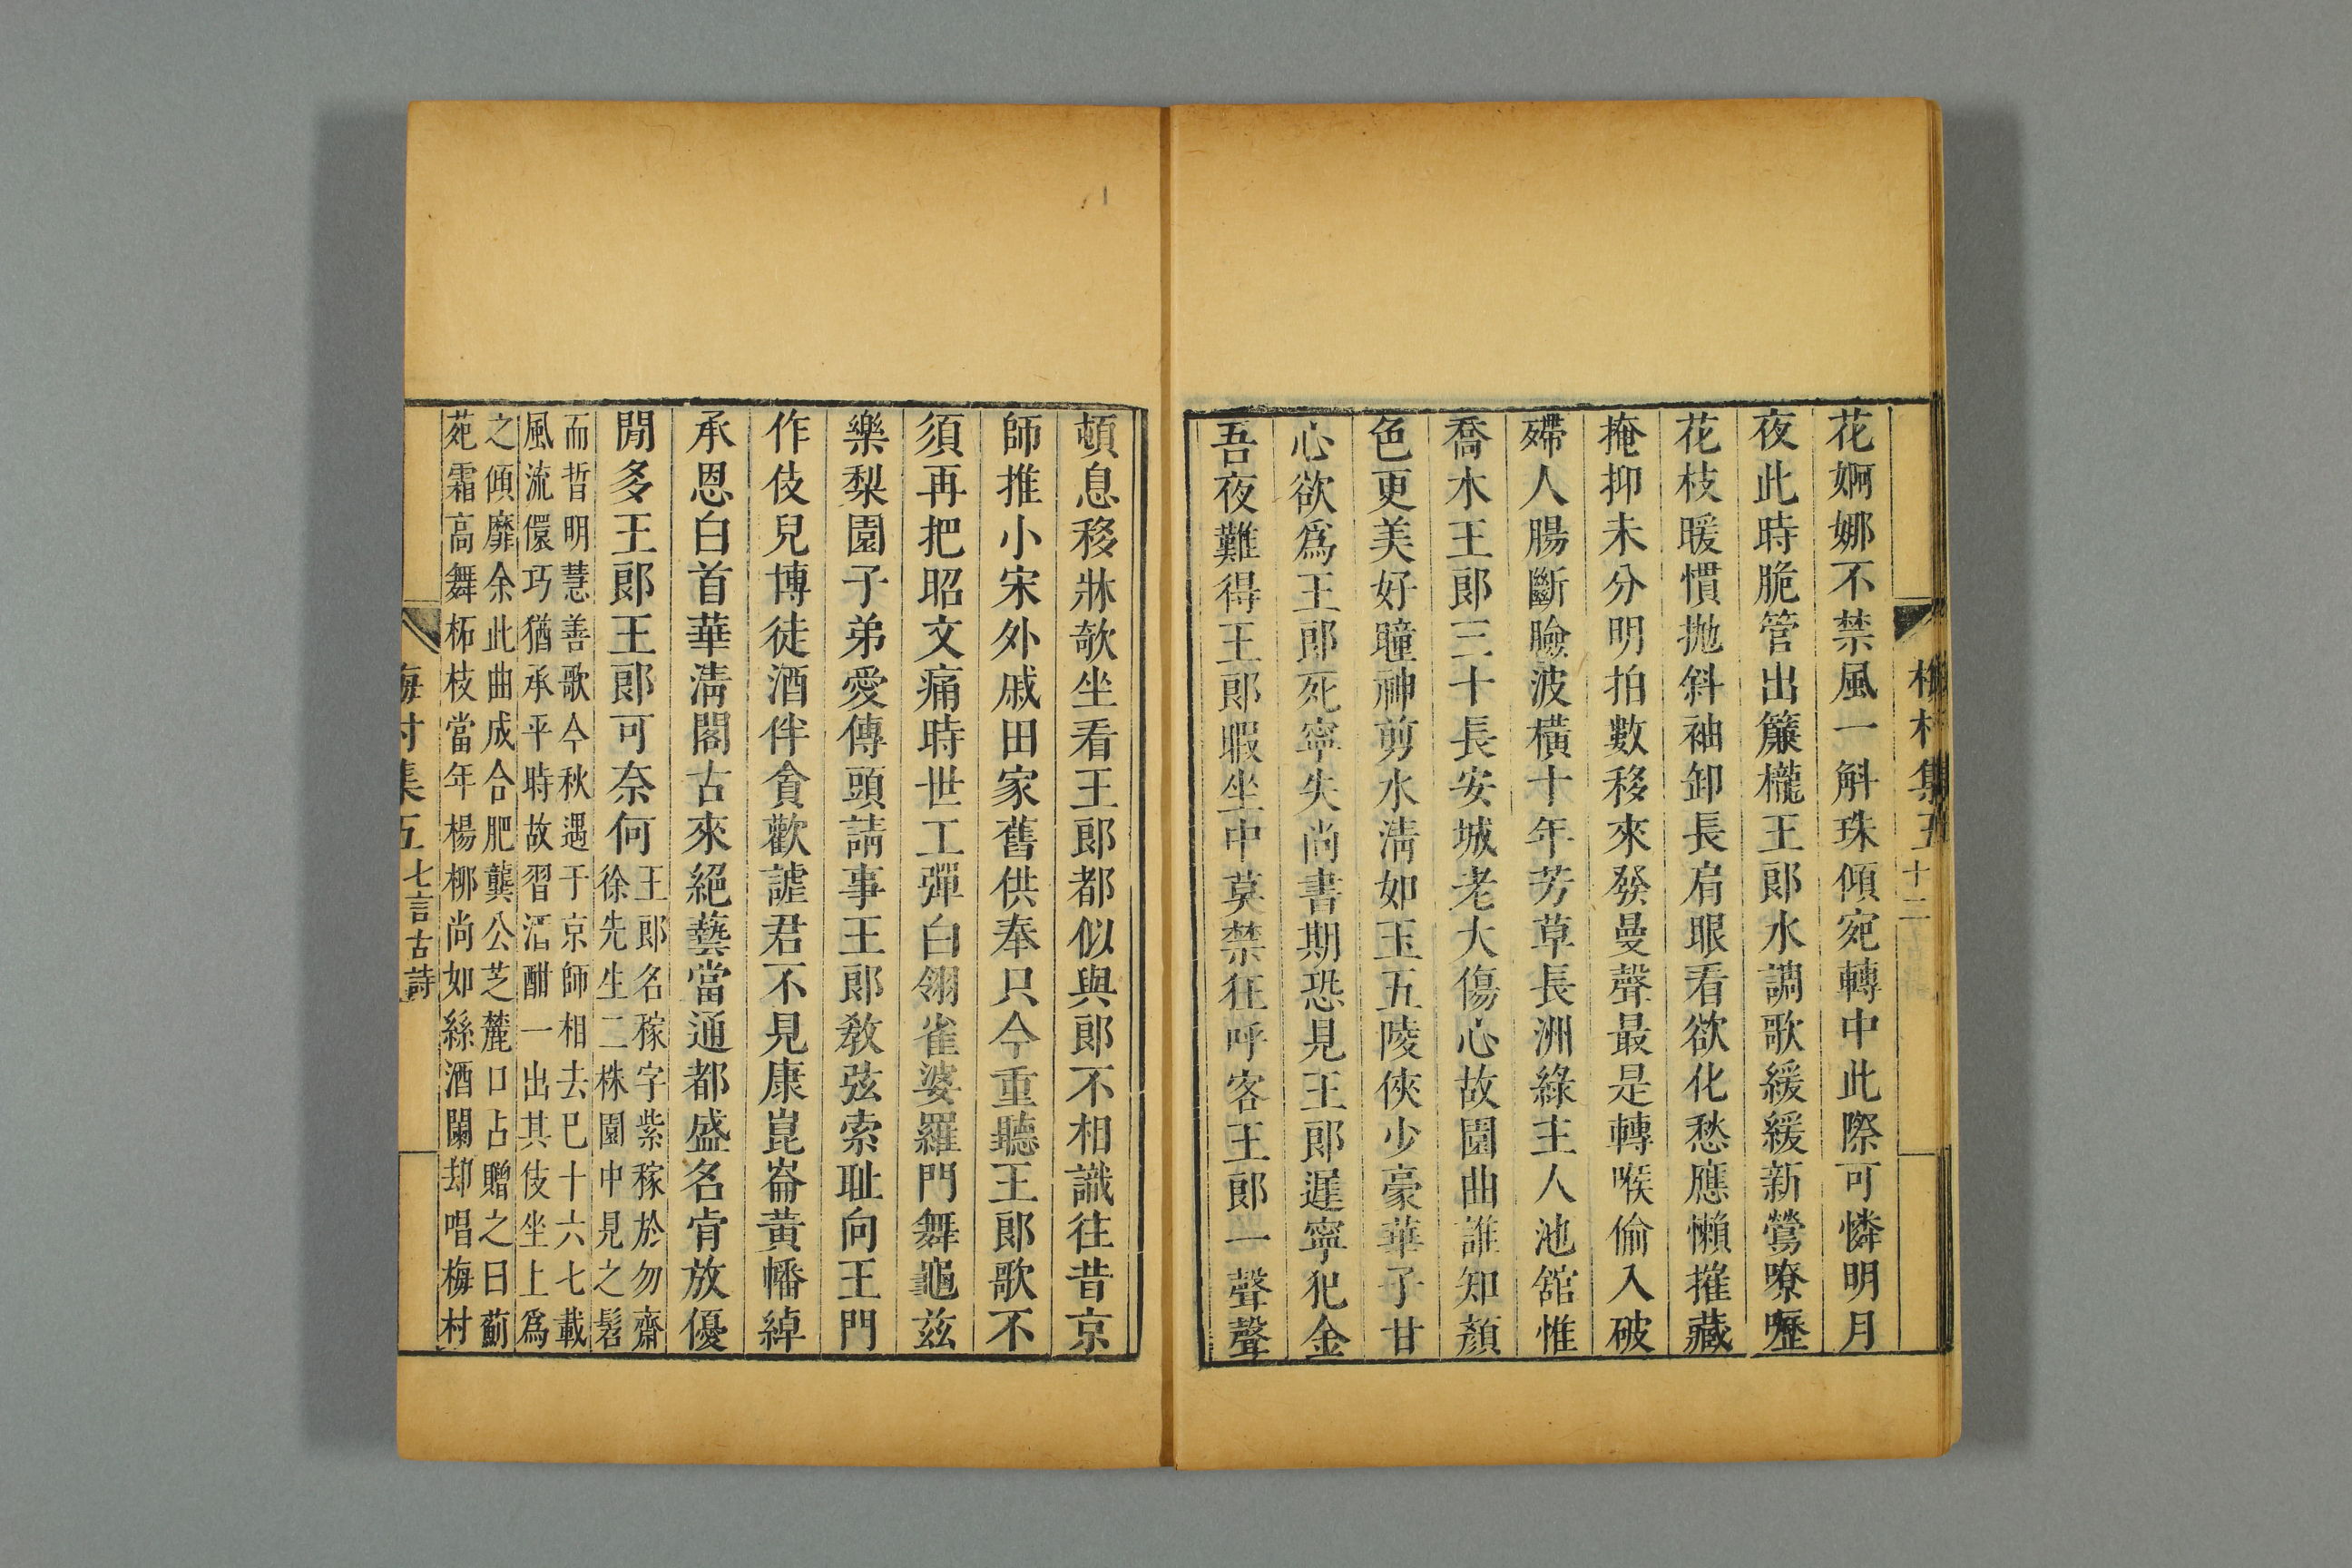 梅村集五 十二
花婀娜不禁風一斛珠傾宛轉中此際可憐明月
夜此時脆管出簾櫳王郎水調歌緩緩新鶯嘹嚦
花枝暖慣拋斜袖卸長肩眼看欲化愁應懶摧藏
掩抑未分明拍數移來發曼聲最是轉喉偷入破
殢人腸斷臉波橫十年芳草長洲綠主人池館惟
喬木王郎三十長安城老大傷心故園曲誰知顏
色更美好瞳神剪水清如玉五陵俠少豪華子甘
心欲爲王郎死寧失尚書期恐見王郎遲寧犯金
吾夜難得王郎暇坐中莫禁狂呼客王郎一聲聲
頓息移牀欹坐看王郎都似與郎不相識往昔京
師推小宋外戚田家舊供奉只今重聽王郎歌不
須再把昭文痛時世工彈白翎雀婆羅門舞龜茲
樂梨園子弟愛傳頭請事王郎教弦索耻向王門
作伎兒博徒酒伴貪歡謔君不見康崑崙黃幡綽
承恩白首華清閣古來絕藝當通都盛名肯放優
閒多王郎王郎可奈何
王郎名稼字紫稼於勿齋
徐先生二株園中見之髫
而晳明慧善歌今秋遇于京師相去巳十六七載
風流儇巧猶承平時故習酒酣一出其伎坐上爲
之傾靡余此曲成合肥龔公芝麓口占贈之曰薊
苑霜高舞柘枝當年楊柳尚如絲酒闌却唱梅村
梅村集五 七言古詩